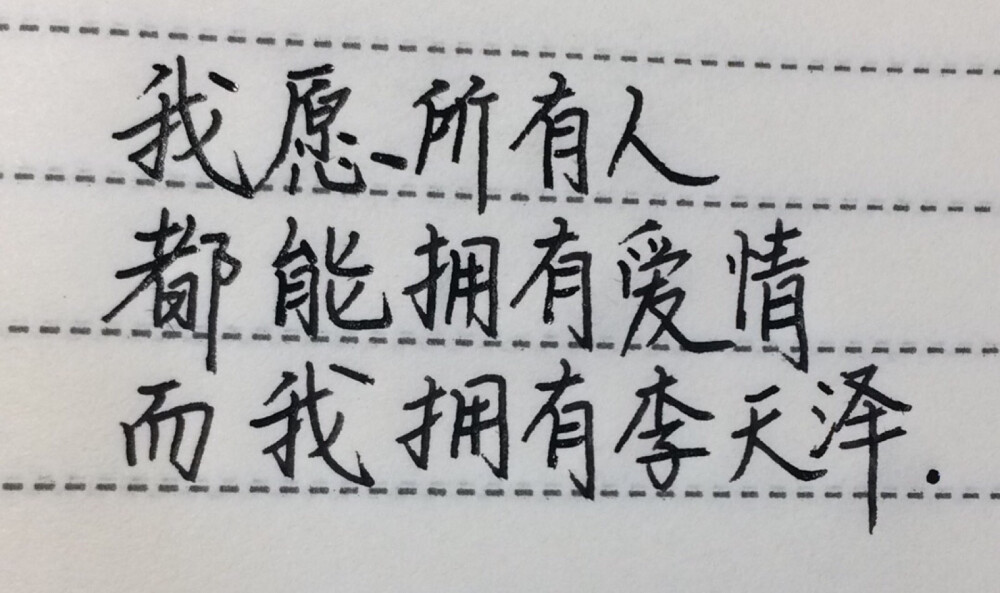 我愿所有人
都能拥有爱情
而我拥有李天泽.